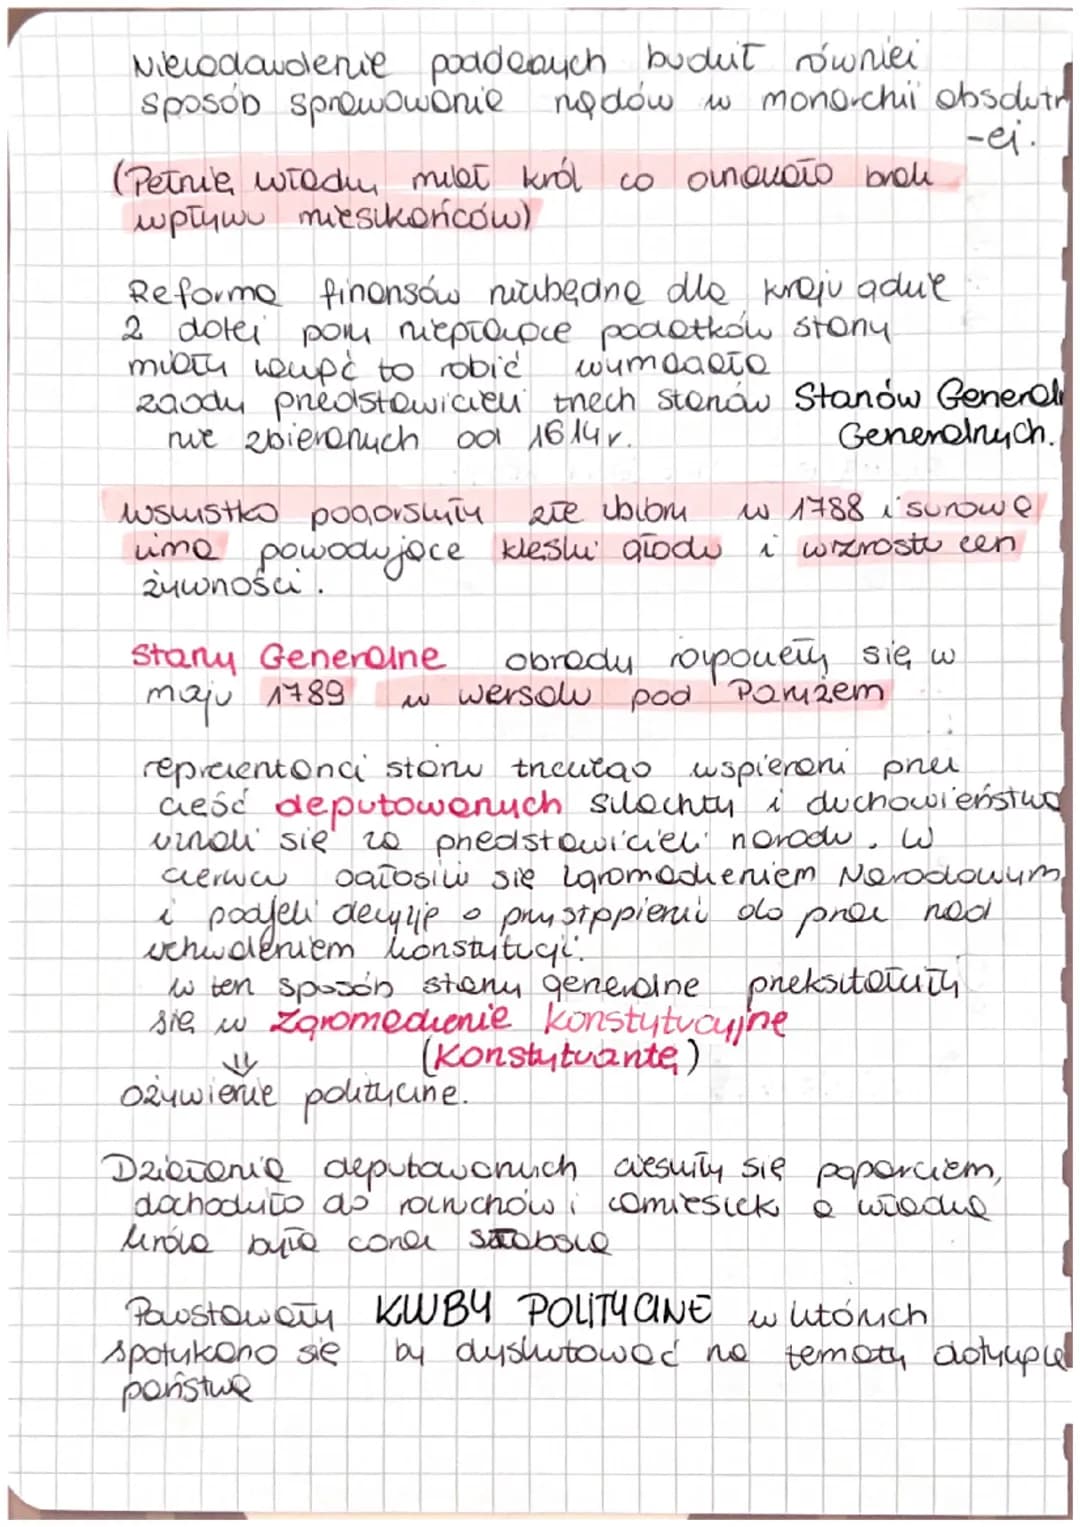 Niezadowolenie poddanych budził również
sposób sprawowania rządów w monarchii absolutn
-ej.
(Pełnię władzy miał król co oznaczało brak
wpływu mieszkańców)
Reforma finansów niezbędna dla kraju gdzie
2 dotej pory niepłacące podatków stany
miały zacząć to robić wymagała
zgody przedstawicieli trzech stanów Stanów General
nie zbieranych od 1614r. Generalnych.
wszystko pogorszyły złe zbiory w 1788 i surowa
zima powodujące klęski głodu i wzrostu cen
żywności.
Stany Generalne obrady rozpoczęły się w
maju 1789 w wersalu pod Paryżem
reprezentanci stanu trzeciego wspierani przez
cześć deputowanych szlachty i duchowieństwa
uznali się za przedstawicieli narodu. W
czerwcu ogłosili się Zgromadzeniem Narodowym
i podjeli decyzję o przystąpieniu do prac nad
uchwaleniem konstytucji.
w ten sposób stany generalne przekształciły
się w Zgromadzenie Konstytucyjne
(Konstytuantę)
⇓
Ożywienie polityczne.
Działania deputowanych cieszyły się poparciem,
dochodziło do rozruchów i zamieszek a władza
króla była coraz słabsza
Powstawały KLUBY POLITYCZNE w których
spotykano się by dyskutować na tematy dotyczące
państwa